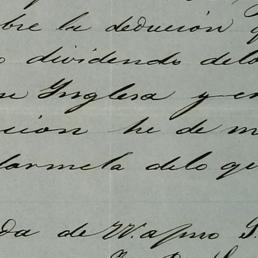 bre la deducion
dividendo delo
Inglesa y en
cion he de m
darmela delo que
da de W. apmo